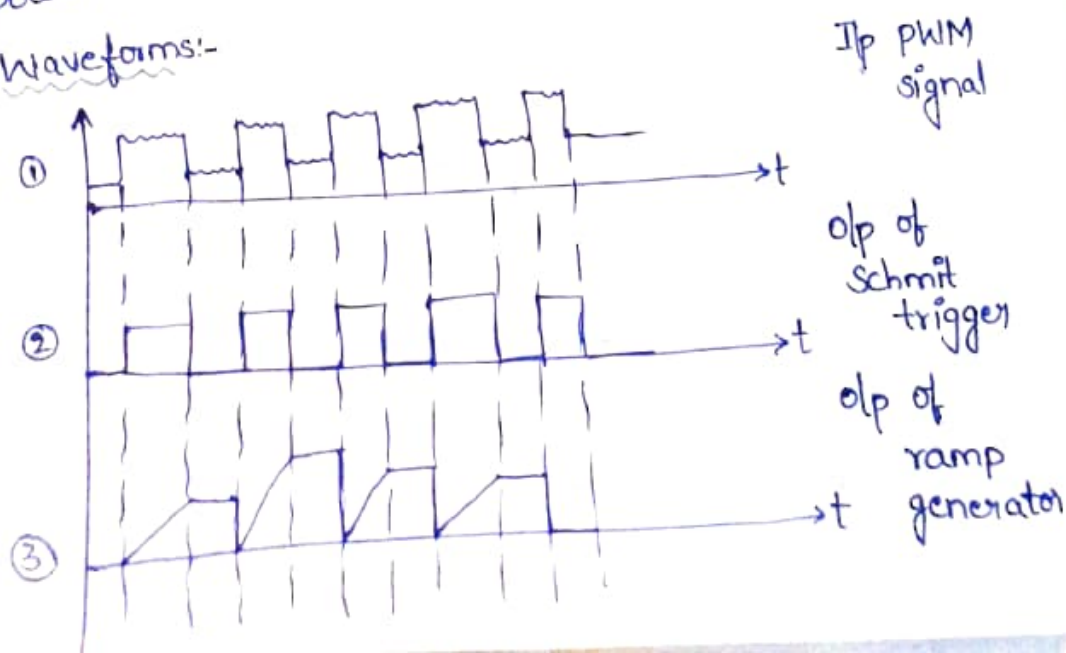 Waveforms:-
I/p PWM
signal
①
t
o/p of
schmit
trigger
②
t
o/p of
ramp
generator
③
t